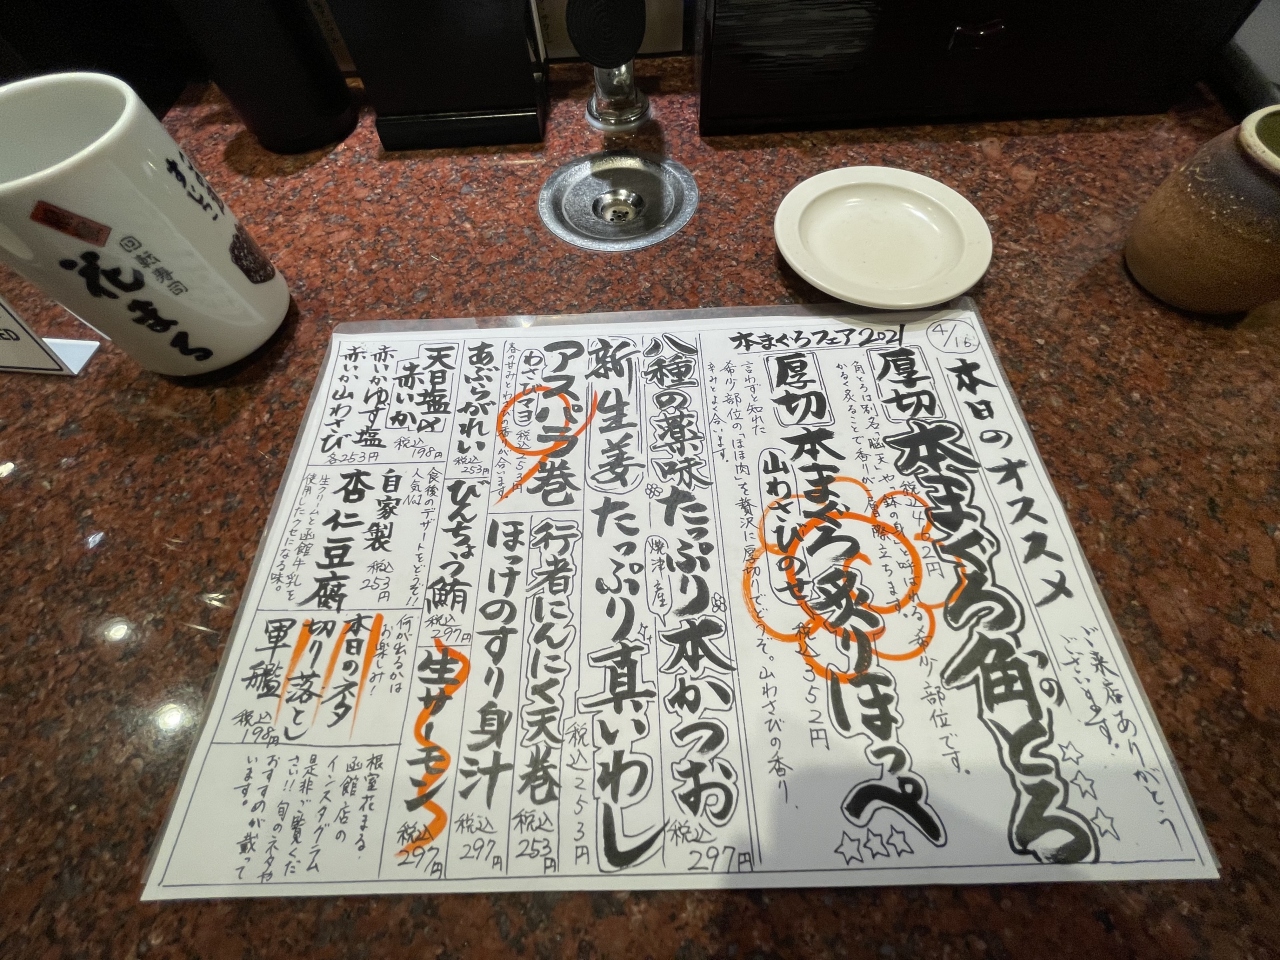 4/16
本日のオススメ
ご来店ありがとう
ございます。
本まぐろフェア2021
厚切 本まぐろ角とろ
税込462円
厚切 本まぐろ炙りほっぺ
山わさびのせ 税込352円
言わずと知れた
希少部位の「ほほ肉」を贅沢に厚切りでどうぞ。山わさびの香り、
辛みとよく合います。
八種の薬味たっぷり 焼津産 本かつお
税込297円
新生姜たっぷり真いわし
税込253円
アスパラ巻
わさびマヨ 税込253円
行者にんにく天巻
税込253円
ほっけのすり身汁
税込297円
あぶらがれい
税込253円
びんちょう鮪
税込297円
生サーモン
税込297円
天日塩〆
赤いか
税込198円
赤いかゆず塩
赤いか山わさび
各253円
食後のデザートをどうぞ!!
人気No.
自家製
杏仁豆腐
税込253円
生クリームと函館牛乳を
使用したクセになる味。
何が出るかは
お楽しみ!
本日のネタ
切り落とし
軍艦
税込198円
根室花まる
函館店の
インスタグラム
是非ご覧くだ
さい!! 旬のネタや
おすすめが載って
います。
回転寿司
花まる